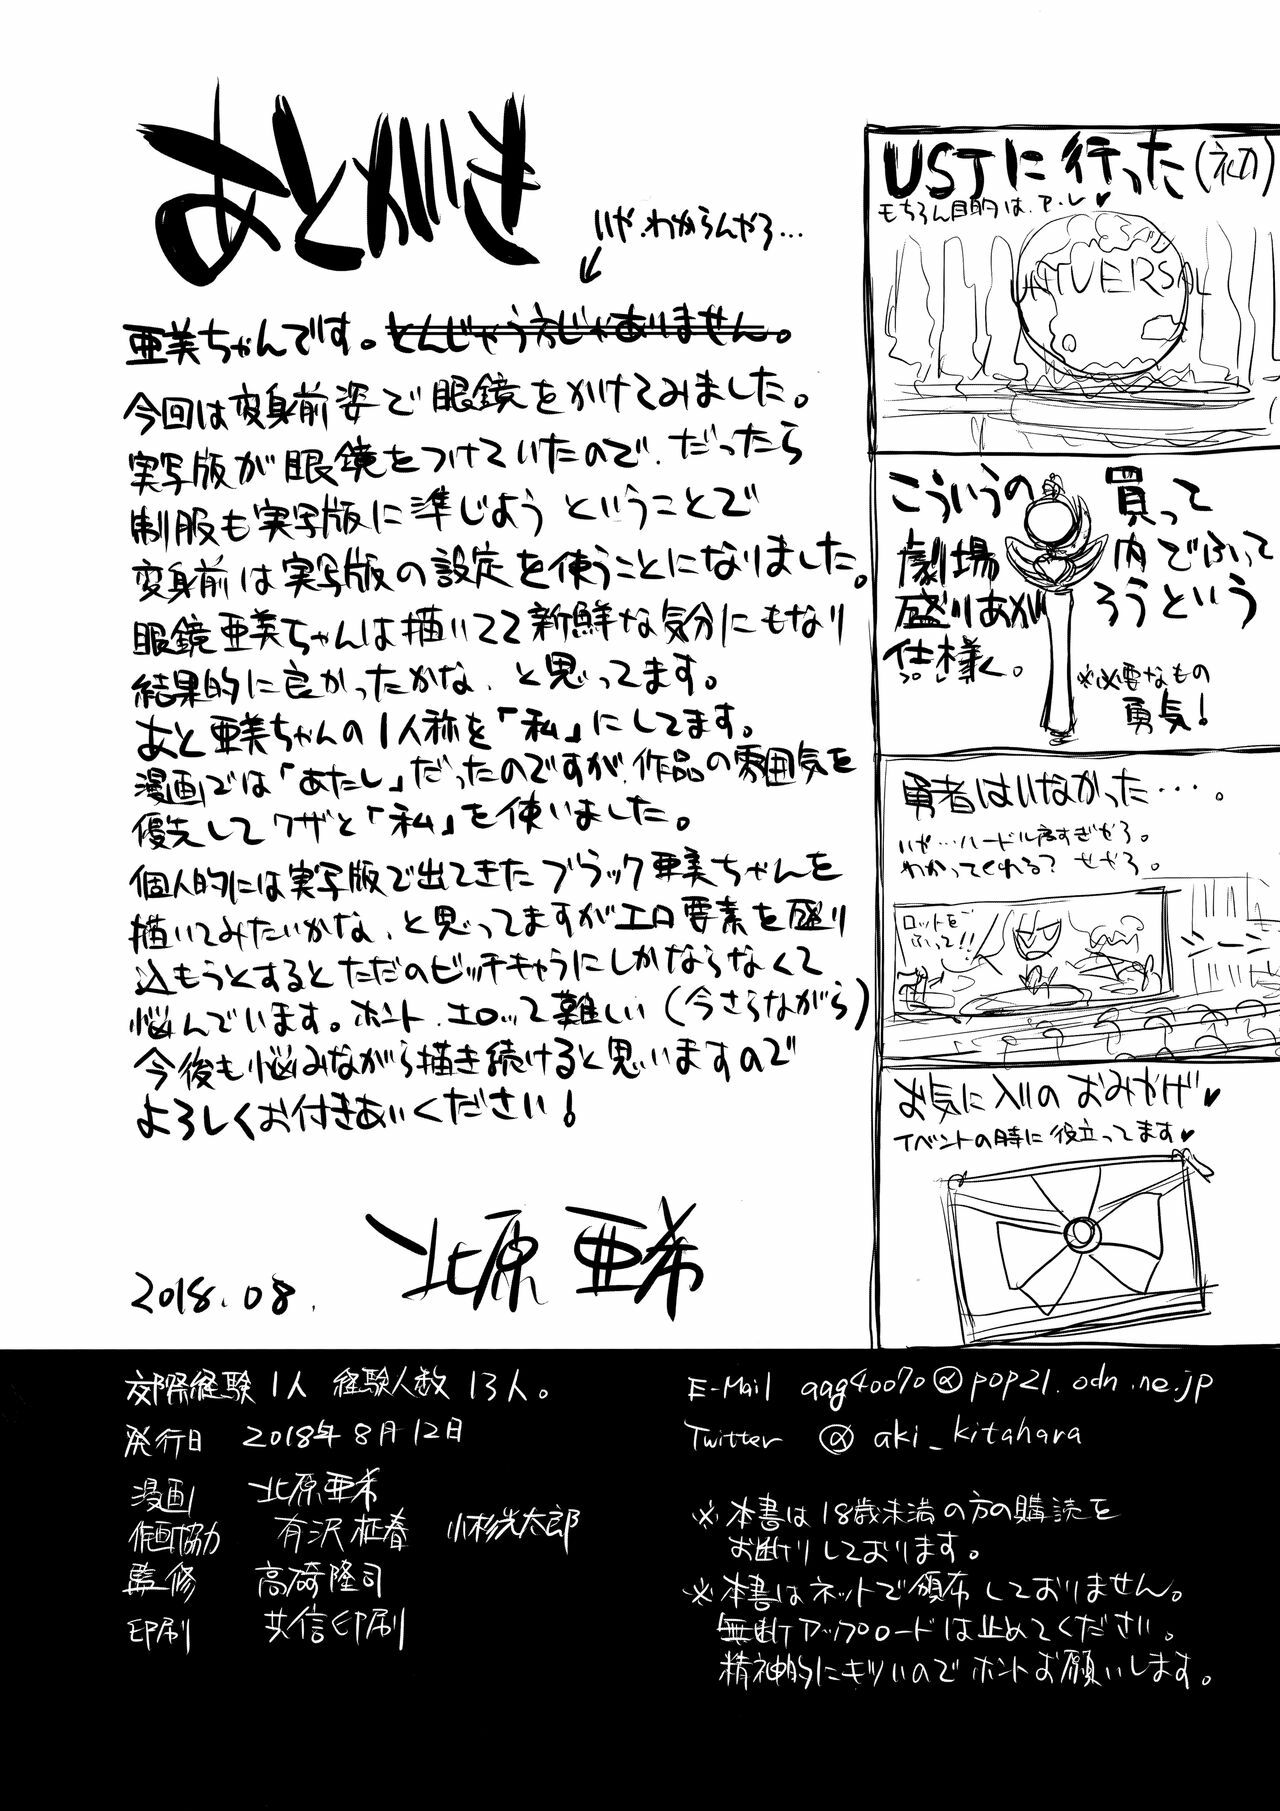 あとがき
いや、わからんやろ…
亜美ちゃんです。とんじゃう方じゃありません。
今回は変身前姿で眼鏡をかけてみました。
実写版が眼鏡をつけていたので、だったら
制服も実写版に準じよう ということで
変身前は実写版の設定を使うことになりました。
眼鏡亜美ちゃんは描いてて新鮮な気分にもなり
結果的に良かったかな、と思ってます。
あと亜美ちゃんの1人称を「私」にしてます。
漫画では「あたし」だったのですが、作品の雰囲気を
優先してワザと「私」を使いました。
個人的には実写版で出てきたブラック亜美ちゃんを
描いてみたいかな、と思ってますがエロ要素を盛り
込もうとするとただのビッチキャラにしかならなくて
悩んでいます。ホント、エロって難しい（今さらながら）
今後も悩みながら描き続けると思いますので
よろしくお付きあいください！
2018.08.
北原亜希
USJに行った(初)
もちろん目的は、ア・レ♥
UNIVERSAL
こういうの買って
劇場内でふって
盛りあがろうという
仕様。
※必要なもの
勇気！
勇者はいなかった…。
いや…ハードル高すぎやろ。
わかってくれる？せやろ。
ロットを
ふって!!
シーン
お気に入りのおみやげ♥
イベントの時に役立ってます♥
交際経験1人 経験人数13人。
発行日 2018年8月12日
漫画 北原亜希
作画協力 有沢柾春 小杉光太郎
監修 高崎隆司
印刷 共信印刷
E-Mail aag40070@pop21.odn.ne.jp
Twitter @aki_kitahara
※本書は18歳未満の方の購読を
お断りしております。
※本書はネットで頒布しておりません。
無断アップロードは止めてください。
精神的にキツいのでホントお願いします。